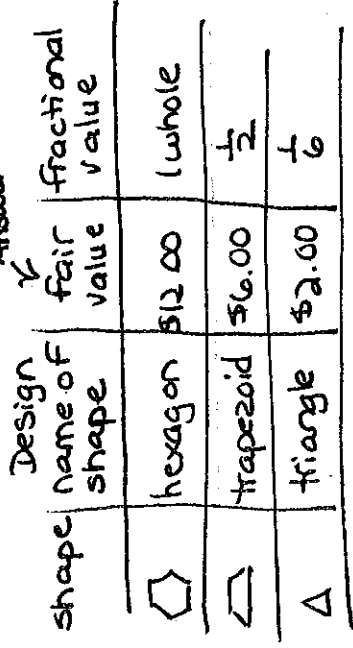 Answer
Design
shape name of shape fair value fractional value
hexagon $12.00 1 whole
trapezoid $6.00 1/2
triangle $2.00 1/6